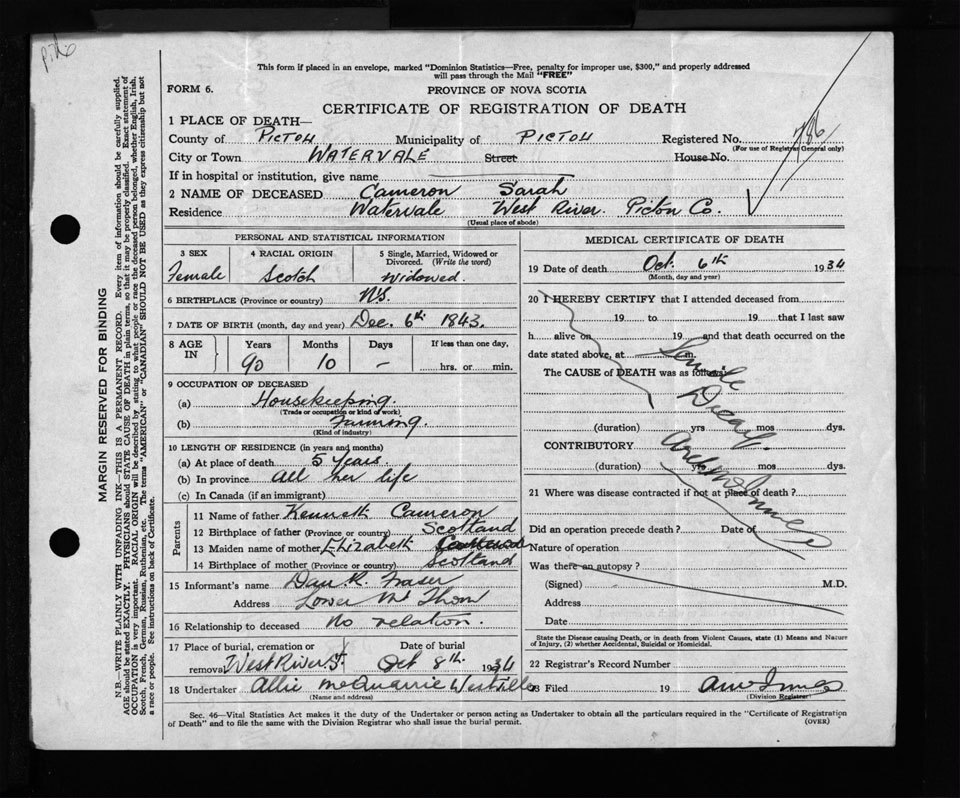 This form if placed in an envelope, marked "Dominion Statistics—Free, penalty for improper use, $300," and properly addressed
will pass through the Mail "FREE"
FORM 6.
PROVINCE OF NOVA SCOTIA
CERTIFICATE OF REGISTRATION OF DEATH
1 PLACE OF DEATH—
County of PICTOU Municipality of PICTOU Registered No. 786
(For use of Registrar General only)
City or Town WATERVALE Street House No.
If in hospital or institution, give name
2 NAME OF DECEASED Cameron Sarah
Residence Watervale West River Pictou Co.
(Usual place of abode)
PERSONAL AND STATISTICAL INFORMATION
3 SEX 4 RACIAL ORIGIN 5 Single, Married, Widowed or Divorced. (Write the word)
Female Scotch Widowed
6 BIRTHPLACE (Province or country) N.S.
7 DATE OF BIRTH (month, day and year) Dec. 6th 1843.
8 AGE IN Years Months Days If less than one day,
90 10 – hrs. or min.
9 OCCUPATION OF DECEASED
(a) Housekeeping.
(Trade or occupation or kind of work)
(b) Farming.
(Kind of industry)
10 LENGTH OF RESIDENCE (in years and months)
(a) At place of death 5 Years
(b) In province All her life
(c) In Canada (if an immigrant)
Parents
11 Name of father Kenneth Cameron
12 Birthplace of father (Province or country) Scotland
13 Maiden name of mother Elizabeth
14 Birthplace of mother (Province or country) Scotland
15 Informant's name Dan R. Fraser
Address Lower Mt Thom
16 Relationship to deceased No relation.
17 Place of burial, cremation or removal West River Date of burial Oct 8th 1934
18 Undertaker Allie McQuarrie Westville
(Name and address)
MEDICAL CERTIFICATE OF DEATH
19 Date of death Oct 6th 1934
(Month, day and year)
20 I HEREBY CERTIFY that I attended deceased from
19 to 19 that I last saw
h alive on 19 and that death occurred on the
date stated above, at m.
The CAUSE of DEATH was as follows:
Senile
Decay.
(duration) yrs mos dys.
CONTRIBUTORY
(duration) yrs mos dys.
Arch McInnes
21 Where was disease contracted if not at place of death?
Did an operation precede death? Date of
Nature of operation
Was there an autopsy?
(Signed) M.D.
Address
Date
State the Disease causing Death, or in death from Violent Causes, state (1) Means and Nature
of Injury, (2) whether Accidental, Suicidal or Homicidal.
22 Registrar's Record Number
23 Filed 19
(Division Registrar)
Sec. 46—Vital Statistics Act makes it the duty of the Undertaker or person acting as Undertaker to obtain all the particulars required in the "Certificate of Registration
of Death" and to file the same with the Division Registrar who shall issue the burial permit. (OVER)
MARGIN RESERVED FOR BINDING
N.B.—WRITE PLAINLY WITH UNFADING INK—THIS IS A PERMANENT RECORD. Every item of information should be carefully supplied.
AGE should be stated EXACTLY. PHYSICIANS should STATE CAUSE OF DEATH in plain terms, so that it may be properly classified. Exact statement of
OCCUPATION is very important. RACIAL ORIGIN will be described by stating to what people or race the deceased person belonged, whether English, Irish,
Scotch, French, German, Russian, Ruthenian, etc. The terms "AMERICAN" or "CANADIAN" SHOULD NOT BE USED as they express citizenship but not
a race or people. See instructions on back of Certificate.